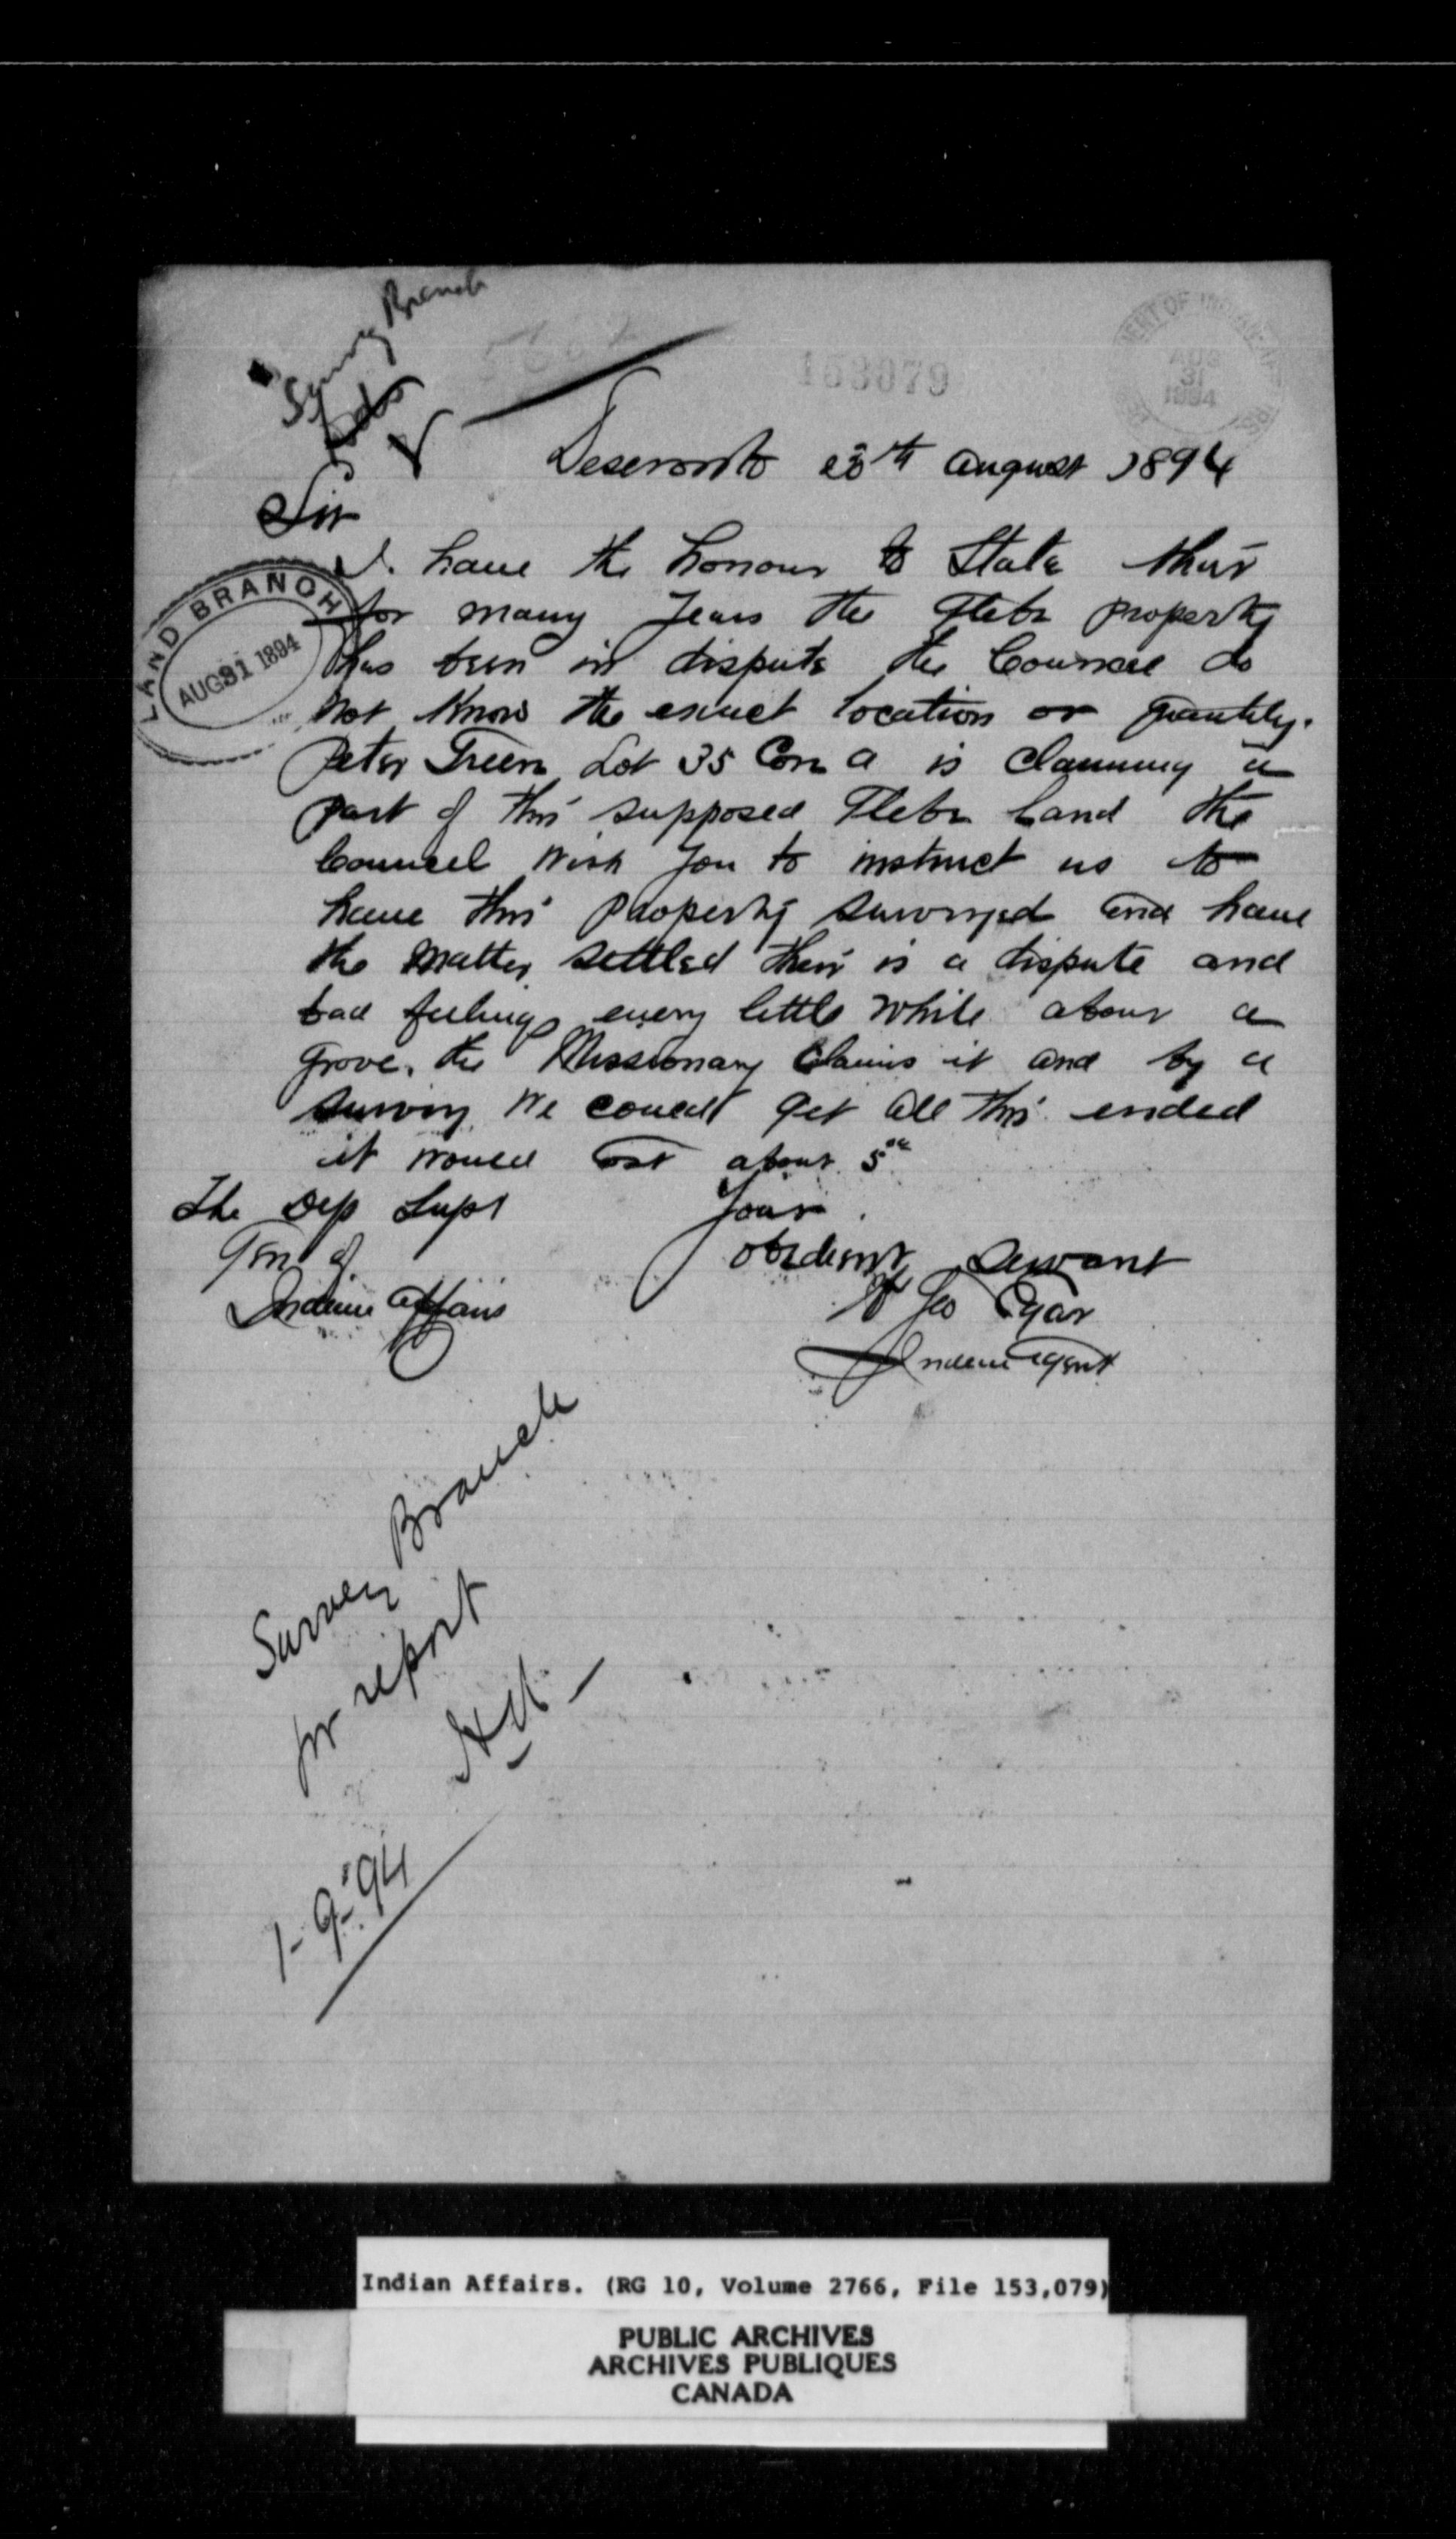 Survey Branch
153079
DEPARTMENT OF INDIAN AFFAIRS
AUG
31
1894
Deseronto 28th August 1894
Sir
LAND BRANCH
AUG 31 1894
I have the honour to State that
for many years the Glebe property
has been in dispute the Councel do
not know the exact location or quantity.
Peter Green Lot 35 Con A is claiming a
part of this supposed Glebe Land the
Councel wish you to instruct us to
have this property surveyed and have
the matter settled their is a dispute and
bad feelings every little while about a
grove. the Missionary Claims it and by a
survey we could get all this ended
it would cost about 5
The Dep Supt
Gen of
Indian Affairs
Your
obedient Servant
Geo Egar
Indian Agent
Survey Branch
for report
1-9-'94
Indian Affairs. (RG 10, Volume 2766, File 153,079)
PUBLIC ARCHIVES
ARCHIVES PUBLIQUES
CANADA